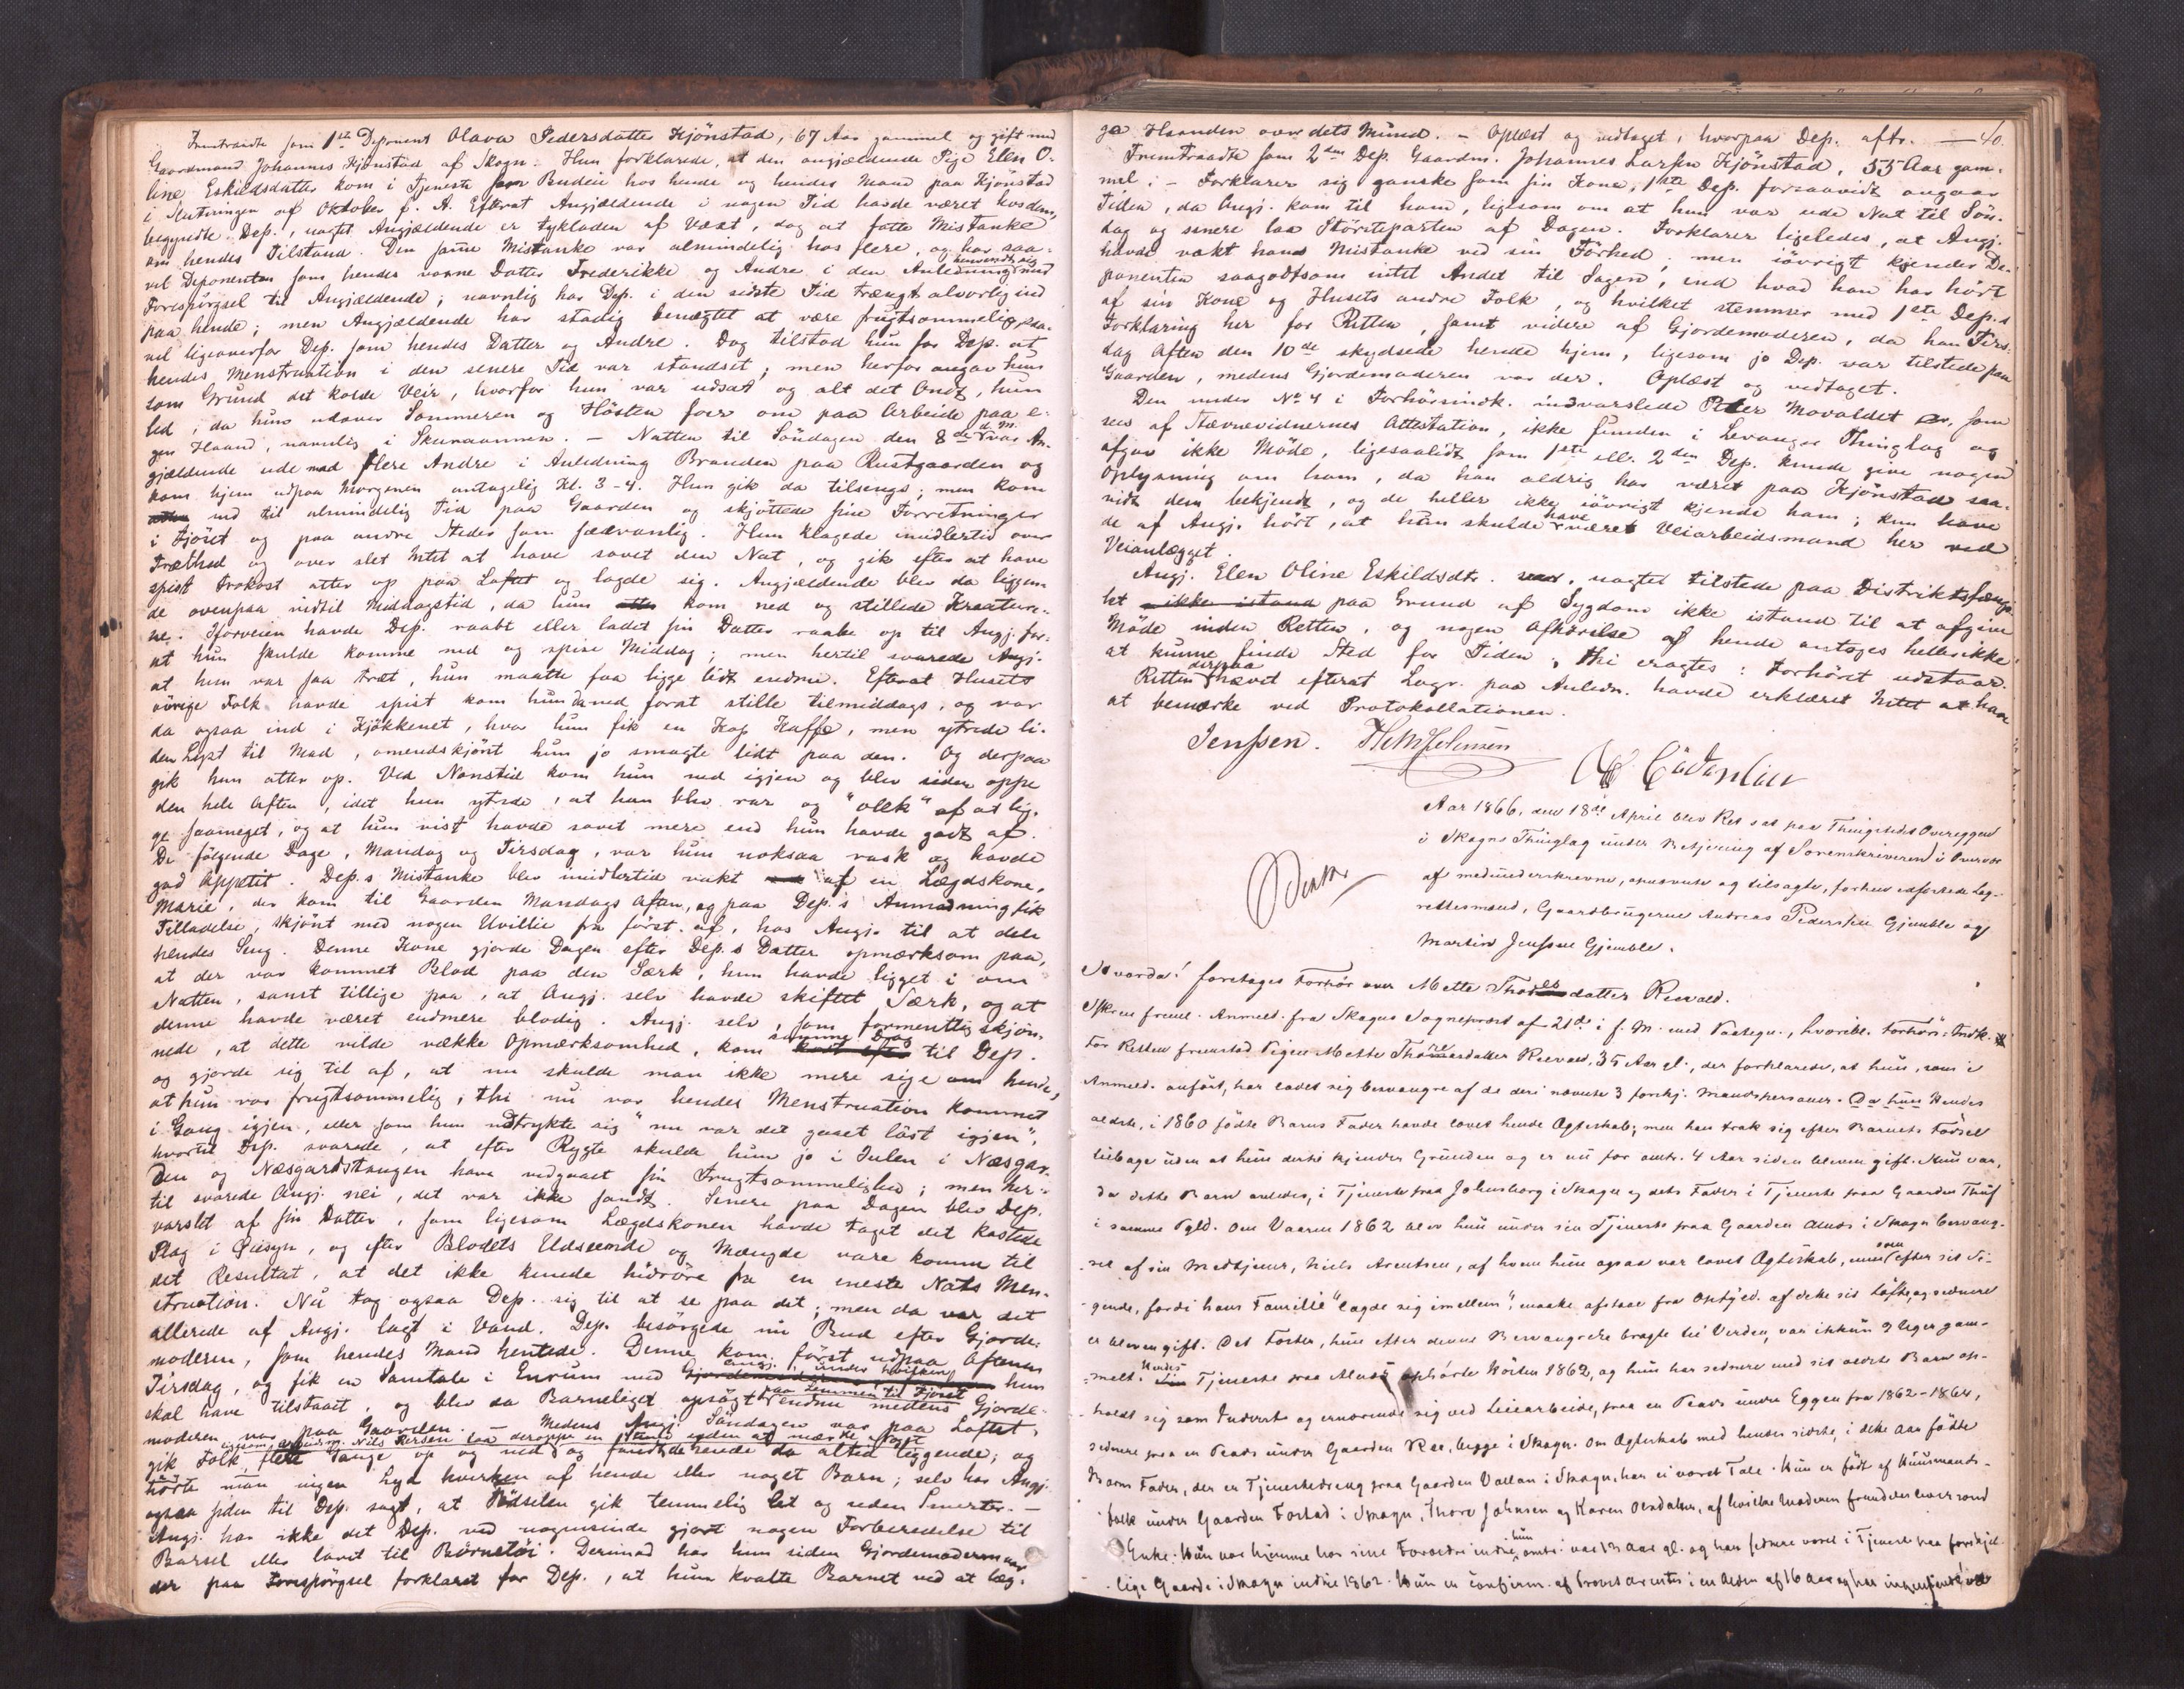 Fremtraadte som 1ste Deponent Olava Pedersdatter Kjönstad, 67 Aar gammel og gift med
Gaardmand Johannes Kjönstad af Skogn. Hun forklarede, at den angjældende Pige Elen O-
line Eskildsdatter kom i Tjeneste som Budeie hos hende og hendes Mand paa Kjönstad
i Slutningen af Oktober f. A. Efterat Angjældende i nogen Tid havde været hos dem,
begyndte Dep., uagtet Angjældende er tykladen af Væxt, dog at fatte Mistanke
om hendes Tilstand. Den samme Mistanke var almindelig hos flere, og har saa-
vel Deponenten som hendes voxne Datter Frederikke og Andre i den Anledning henvendt sig med
Forespörgsel til Angjældende; navnlig har Dep. i den sidste Tid trængt alvorlig ind
paa hende; men Angjældende har stadig benægtet at være frugtsommelig saa-
vel ligeoverfor Dep. som hendes Datter og Andre. Dog tilstod hun for Dep. at
hendes Menstruation i den senere Tid var standset; men herfor angav hun
som Grund det kolde Veir, hvorfor hun var udsat og alt det Ondt, hun
led, da hun udover Sommeren og Hösten foer om paa Arbeide paa e-
gen Haand, navnlig i Skuraannen. — Natten til Söndagen den 8de d. M. var An-
gjældende ude med flere Andre i Anledning Branden paa Rustgaarden og
kom hjem udpaa Morgenen antagelig Kl. 3-4. Hun gik da tilsengs; men kom
ned til almindelig Tid paa Gaarden og skjöttede sine Forretninger
i Fjöset og paa andre Steder som sædvanlig. Hun klagede imidlertid over
Træthed og over slet Intet at have sovet den Nat, og gik efter at have
spist Frokost atter op paa Loftet og lagde sig. Angjældende blev da liggen-
de ovenpaa indtil Middagstid, da hun kom ned og stillede Kreature-
ne. Iforveien havde Dep. raabt eller ladet sin Datter raabe op til Angj. for-
at hun skulde komme ned og spise Middag; men hertil svarede Angj.
at hun var saa træt, hun maatte faa ligge lidt endnu. Efterat Husets
övrige Folk havde spist kom hun da ned forat stille tilmiddags, og var
da ogsaa ind i Kjökkenet, hvor hun fik en Kop Kaffe, men ytrede li-
den Lyst til Mad, omendskjönt hun jo smagte lidt paa den. Og derpaa
gik hun atter op. Ved Nonstid kom hun ned igjen og blev siden oppe
den hele Aften, idet hun ytrede, at hun blev rar og "olek" af at lig-
ge saameget, og at hun vist havde sovet mere end hun havde godt af.
De fölgende Dage, Mandag og Tirsdag, var hun noksaa rask og havde
god Appetit. Dep.s Mistanke blev imidlertid vakt af en Lægdskone,
Marie, der kom til Gaarden Mandags Aften, og paa Dep.'s Anmodning fik
Tilladelse, skjönt med nogen Uvillie fra först af, hos Angj. til at dele
hendes Seng. Denne Kone gjorde Dagen efter Dep.s Datter opmærksom paa,
at der var kommet Blod paa den Særk, hun havde ligget i om
Natten, samt tillige paa, at Angj. selv havde skiftet Særk, og at
denne havde været endmere blodig. Angj. selv, som formentlig skjön-
nede, at dette vilde vække Opmærksomhed, kom samme Dag til Dep.
og gjorde sig til af, at nu skulde man ikke mere sige om hende,
at hun var frugtsommelig; thi nu var hendes Menstruation kommet
i Gang igjen, eller som hun udtrykte sig "nu var det gaaet löst igjen",
hvortil Dep. svarede, at efter Rygte skulde hun jo i Julen i Næsgar-
den og Næsgardstangen have vedgaaet sin Frugtsommelighed; men her-
til svarede Angj. nei, det var ikke sandt. Senere paa Dagen blev Dep.
varslet af sin Datter, som ligesom Lægdskonen havde taget det kastede
Plag i Öiesyn, og efter Blodets Udseende og Mængde vare komne til
det Resultat, at det ikke kunde hidröre fra en eneste Nats Men-
struation. Nu tog ogsaa Dep. sig til at se paa det; men da var det
allerede af Angj. lagt i Vand. Dep. besörgede nu Bud efter Gjorde-
moderen, som hendes Mand hentede. Denne kom först udpaa Aftenen
Tirsdag, og fik en Samtale i Enrum med Angj., under hvilken hun
skal have tilstaaet, og blev da Barneliget opsögt paa Lemmen til Fjöset endnu medens Gjorde-
moderen var paa Gaarden. — Medens Angj. Söndagen var paa Loftet,
gik Folk, ligesom Nils Persen laa deroppe en Stund uden at mærke Noget flere Gange op og ned og fandt derende da altid liggende; og
hörte man ingen Lyd hverken af hende eller noget Barn; selv har Angj.
ogsaa siden til Dep. sagt, at Födselen gik temmelig let og uden Smerter. —
Angj. har ikke det Dep. ved nogensinde gjort nogen Forberedelse til
Barsel eller lavet til Börnetöi. Derimod har hun siden Gjordemoderen var
der paa Forespörgsel forklaret for Dep., at hun kvalte Barnet ved at læg-
40.
ge Haanden over dets Mund. — Oplæst og vedtaget, hvorpaa Dep. aftr. —
Fremtraadte som 2den Dep. Gaardm. Johannes Larsen Kjönstad, 55 Aar gam-
mel. — Forklarer sig ganske som sin Kone, 1ste Dep. forsaavidt angaar
Tiden, da Angj. kom til ham, ligesom om at hun var ude Nat til Sön-
dag og senere laa Störsteparten af Dagen. Forklarer ligeledes, at Angj.
havde vakt hans Mistanke ved sin Förhed; men iövrigt kjender De-
ponenten saagodtsom intet Andet til Sagen, end hvad han har hört
af sin Kone og Husets andre Folk, og hvilket stemmer med 1ste Dep.s
Forklaring her for Retten, samt videre af Gjordemoderen, da han Tirs-
dag Aften den 10de skydsede hende hjem, ligesom jo Dep. var tilstede paa
Gaarden, medens Gjordemoderen var der. Oplæst og vedtaget.
Den under No 4 i Forhörsindk. indvarslede Peter Movaldet er, som
sees af Stævnevidnernes Attestation, ikke funden i Levanger Thinglag og
afgav ikke Möde, ligesaalidt som 1ste ell. 2den Dep. kunde give nogen
Oplysning om ham, da han aldrig har været paa Kjönstad saa-
vidt dem bekjendt, og de heller ikke iövrigt kjende ham; kun have
de af Angj. hört, at han skulde have været Veiarbeidsmand her ved
Veianlægget.
Angj. Elen Oline Eskildsdtr. var, uagtet tilstede paa Distriktsfængs-
let paa Grund af Sygdom ikke istand til at afgive
Möde inden Retten, og nogen Afhörelse af hende antoges heller ikke
at kunne finde Sted for Tiden; thi eragtes: Forhöret udstaar.
Retten derpaa hævet efterat Lagr. paa Anledn. havde erklæret Intet at have
at bemærke ved Protokollationen.
Jenssen.
Aar 1866, den 18de April blev Ret sat paa Thingstedet Overeggen
i Skogns Thinglag under Betjening af Sorenskriveren i Overvær
af medunderskrevne, opnævnte og tilsagte, forhen edfæstede Lag-
rettesmænd, Gaardbrugerne Andreas Pedersen Gjemble og
Martin Jenssen Gjemble.
Hvorda! foretoges Forhör over Mette Thoresdatter Reevald.
Skrev freml. Anmeld. fra Skogns Sognepræst af 21de i f. M. med Paategn., hvoribl. Forhörs-Indk.
For Retten fremstod Pigen Mette Thoresdatter Reevald, 35 Aar gl., der forklarede, at hun, som i
Anmeld. anfört, har ladet sig besvangre af de deri nævnte 3 forskj. Mandspersoner. Hendes
ældste, i 1860 födte Barns Fader havde lovet hende Ægteskab; men han trak sig efter Barnets Födsel
tilbage uden at hun dertil kjender Grunden og er nu for omtr. 4 Aar siden bleven gift. Hun var,
da dette Barn avledes, i Tjeneste paa Johnsborg i Skogn og dets Fader i Tjeneste paa Gaarden
i samme Pgld. Om Vaaren 1862 blev hun under sin Tjeneste paa Gaarden i Skogn besvang-
ret af sin Medtjener, Niels Arentsen, af hvem hun ogsaa var lovet Ægteskab, men som efter sit Si-
gende, fordi hans Familie "lagde sig imellem", maatte afstaae fra Opfyld. af dette sit Löfte, og sednere
er bleven gift. Det Foster, hun efter denne Besvangrelse bragte til Verden, var ikkun 9 Uger gam-
melt. Hendes Tjeneste paa ophörte Hösten 1862, og hun har sednere med sit ældste Barn op-
holdt sig som Inderst og ernærende sig ved Leiearbeide, paa en Plads under Eggen fra 1862-1864,
sednere paa en Plads under Gaarden Ree, begge i Skogn. Om Ægteskab med hendes sidste, i dette Aar födte
Barns Fader, der er Tjenestedreng paa Gaarden Vollan i Skogn, har ei været Tale. Hun er födt af Huusmands-
folk under Gaarden Forstad i Skogn, Thore Johnsen og Karen Olsdatter, af hvilke Moderen fremdeles lever som
Enke. Hun var hjemme hos sine Foræld re indtil hun omtr. var 13 Aar gl. og har sednere været i Tjeneste paa forskjel-
lige Gaarde i Skogn indtil 1862. Hun er confirm. af Provst Arentz i en Alder af 16 Aar og har ingensinde